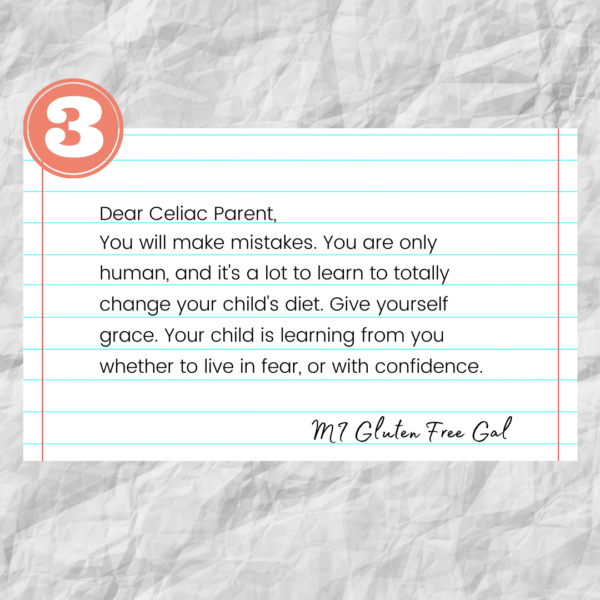 3
Dear Celiac Parent,
You will make mistakes. You are only
human, and it's a lot to learn to totally
change your child's diet. Give yourself
grace. Your child is learning from you
whether to live in fear, or with confidence.
MI Gluten Free Gal